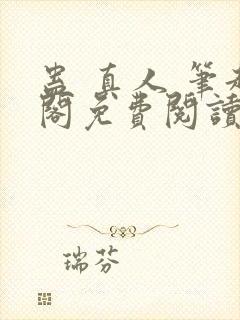 蛊真人 筆
閣免費閱讀
瑞芬